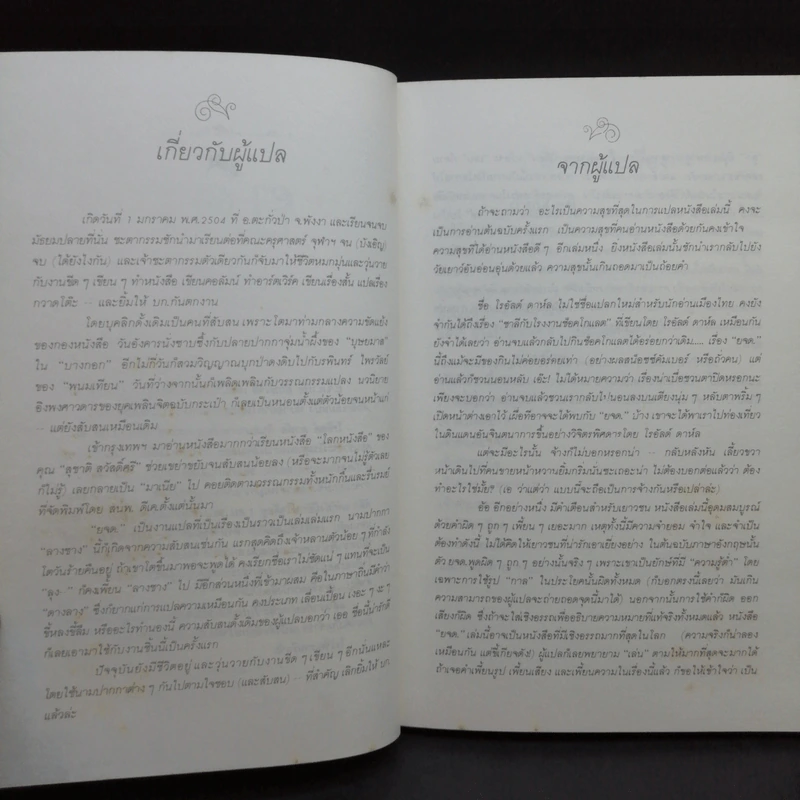 เกี่ยวกับผู้แปล
เกิดวันที่ 1 มกราคม พ.ศ.2504 ที่ อ.ตะกั่วป่า จ.พังงา และเรียนจนจบ
มัธยมปลายที่นั่น ชะตากรรมชักนำมาเรียนต่อที่คณะครุศาสตร์ จุฬาฯ จน (บังเอิญ)
จบ (ได้ยังไงกัน) และเจ้าชะตากรรมตัวเดียวกันก็จับมาให้ชีวิตหมกมุ่นและวุ่นวาย
กับงานขีด ๆ เขียน ๆ ทำหนังสือ เขียนคอลัมน์ ทำอาร์ตเวิร์ค เขียนเรื่องสั้น แปลเรื่อง
กวาดโต๊ะ -- และยิ่มให้ บก.กันตกงาน
โดยบุคลิกดั้งเดิมเป็นคนที่สับสน เพราะโตมาท่ามกลางความขัดแย้ง
ของกองหนังสือ วันอังคารนั่งซาบซึ้งกับปลายปากกาจุ่มน้ำผึ้งของ "บุษยมาส"
ใน "บางกอก" อีกไม่กี่วันก็สวมวิญญาณบุกป่าดงดิบไปกับรพินทร์ ไพรวัลย์
ของ "พนมเทียน" วันที่ว่างจากนั้นก็เพลิดเพลินกับวรรณกรรมแปลง นวนิยาย
อิงพงศาวดารของยุคเพลินจิตฉบับกระเป๋า ก็เลยเป็นหนอนตั้งแต่ตัวน้อยจนหน้าแก่
-- แต่ยังสับสนเหมือนเดิม
เข้ากรุงเทพฯ มาอ่านหนังสือมากกว่าเรียนหนังสือ "โลกหนังสือ" ของ
คุณ "สุชาติ สวัสดิ์ศรี" ช่วยเขย่าขยับจนสับสนน้อยลง (หรือจะมากจนไม่รู้ตัวเลย
ก็ไม่รู้) เลยกลายเป็น "มาเนีย" ไป คอยติดตามวรรณกรรมทั้งหนักกึ้นและรื่นรมย์
ที่จัดพิมพ์โดย สนพ. ดี.เค.ตั้งแต่นั้นมา
"ยจด." เป็นงานแปลที่เป็นเรื่องเป็นราวเป็นเล่มเล่มแรก นามปากกา
"ลางชาง" นี้ก็เกิดจากความสับสนเช่นกัน แรกสุดคิดถึงเจ้าหลานตัวน้อย ๆ ที่กำลัง
โตวันร้ายคืนอยู่ ถ้าเขาโตขึ้นมาพอจะพูดได้ คงเรียกชื่อเราไม่ชัดแน่ ๆ แทนที่จะเป็น
"ลุง- " ก็คงเพี้ยน "ลางชาง" ไป มีอีกส่วนหนึ่งที่เข้ามาผสม คือในภาษาถิ่นมีคำว่า
"ดางลาง" ซึ่งก็ยากแก่การแปลความเหมือนกัน คงประเภท เลื่อนเปื้อน เงอะ ๆ งะ ๆ
ขี้หลงขี้ลืม หรืออะไรทำนองนี้ ความสับสนดั้งเดิมของผู้แปลบอกว่า เออ ชื่อนี้น่ารักดี
ก็เลยเอามาใช้กับงานชิ้นนี้เป็นครั้งแรก
ปัจจุบันยังมีชีวิตอยู่ และวุ่นวายกับงานขีด ๆ เขียน ๆ อีกนั่นแหละ
โดยใช้นามปากกาต่าง ๆ กันไปตามใจชอบ (และสับสน) -- ที่สำคัญ เลิกยิ่มให้ บก.
แล้วล่ะ
จากผู้แปล
ถ้าจะถามว่า อะไรเป็นความสุขที่สุดในการแปลหนังสือเล่มนี้ คงจะ
เป็นการอ่านต้นฉบับครั้งแรก เป็นความสุขที่คนอ่านหนังสือด้วยกันคงเข้าใจ
ความสุขที่ได้อ่านหนังสือดี ๆ อีกเล่มหนึ่ง ยิ่งหนังสือเล่มนั้นชักนำเรากลับไปยัง
วัยเยาว์อันอ่อนอุ่นด้วยแล้ว ความสุขนั้นเกินถอดมาเป็นถ้อยคำ
ชื่อ โรอัลด์ ดาห์ล ไม่ใช่ชื่อแปลกใหม่สำหรับนักอ่านเมืองไทย คงยัง
จำกันได้ถึงเรื่อง "ชาลีกับโรงงานช็อคโกแลต" ที่เขียนโดย โรอัลด์ ดาห์ล เหมือนกัน
ยังจำได้เลยว่า อ่านจบแล้วกลับไปกินช็อคโกแลตได้อร่อยกว่าเดิม..... เรื่อง "ยจด."
นี้ถึงแม้จะมีของกินไม่ค่อยอร่อยเท่า (อย่างผลสน็อซซ์คัมเบอร์ หรือถั่วคน) แต่
อ่านแล้วก็ชวนนอนหลับ เอ๊ะ! ไม่ได้หมายความว่า เรื่องน่าเบื่อชวนตาปิดหรอกนะ
เพียงจะบอกว่า อ่านจบแล้วชวนเรากลับไปนอนลงบนเตียงนุ่ม ๆ หลับตาพริ้ม ๆ
เปิดหน้าต่างเอาไว้ เผื่อที่อาจจะได้พบกับ "ยจด." บ้าง เขาจะได้พาเราไปท่องเที่ยว
ในดินแดนอันจินตนาการขึ้นอย่างวิจิตรพิศดารโดย โรอัลด์ ดาห์ล
แต่จะมีอะไรนั้น จ้างก็ไม่บอกหรอกน่า -- กลับหลังหัน เลี้ยวขวา
หน้าเดินไปที่คนขายหน้าหวานยิ้มกริ่มนั่นซะเถอะน่า ไม่ต้องบอกต่อแล้วว่า ต้อง
ทำอะไรใช่มั้ย? (เอ ว่าแต่ว่า แบบนี้จะถือเป็นการจ้างกันหรือเปล่าล่ะ)
อ้อ อีกอย่างหนึ่ง มีคำเตือนสำหรับเยาวชน หนังสือเล่มนี้อุดมสมบูรณ์
ด้วยคำผิด ๆ ถูก ๆ เพี้ยน ๆ เยอะมาก เหตุทั้งนี้มีความจำยอม จำใจ และจำเป็น
ต้องทำดังนี้ ไม่ได้คิดให้เยาวชนที่น่ารักเอาเยี่ยงอย่าง ในต้นฉบับภาษาอังกฤษนั้น
ตัว ยจด.พูดผิด ๆ ถูก ๆ อย่างนั้นจริง ๆ เพราะเขาเป็นยักษ์ที่มี "ความรู้ต่ำ" โดย
เฉพาะการใช้รูป "กาล" ในประโยคนั้นผิดทั้งหมด (กับบอกตรงนี้เลยว่า มันเกิน
ความสามารถของผู้แปลจะถ่ายถอดจุดนี้มาได้) นอกจากนั้นการใช้คำก็ผิด ออก
เสียงก็ผิด ซึ่งถ้าจะใส่เชิงอรรถเพื่ออธิบายความหมายที่แท้จริงทั้งหมดแล้ว หนังสือ
"ยจด."เล่มนี้อาจเป็นหนังสือที่มีเชิงอรรถมากที่สุดในโลก (ความจริงก็น่าลอง
เหมือนกัน แต่ขี้เกียจดัง!) ผู้แปลก็เลยพยายาม "เล่น" ตามให้มากที่สุดจะมากได้
ถ้าเจอคำเพี้ยนรูป เพี้ยนเสียง และเพี้ยนความในเรื่องนี้แล้ว ก็ขอให้เข้าใจว่า เป็น